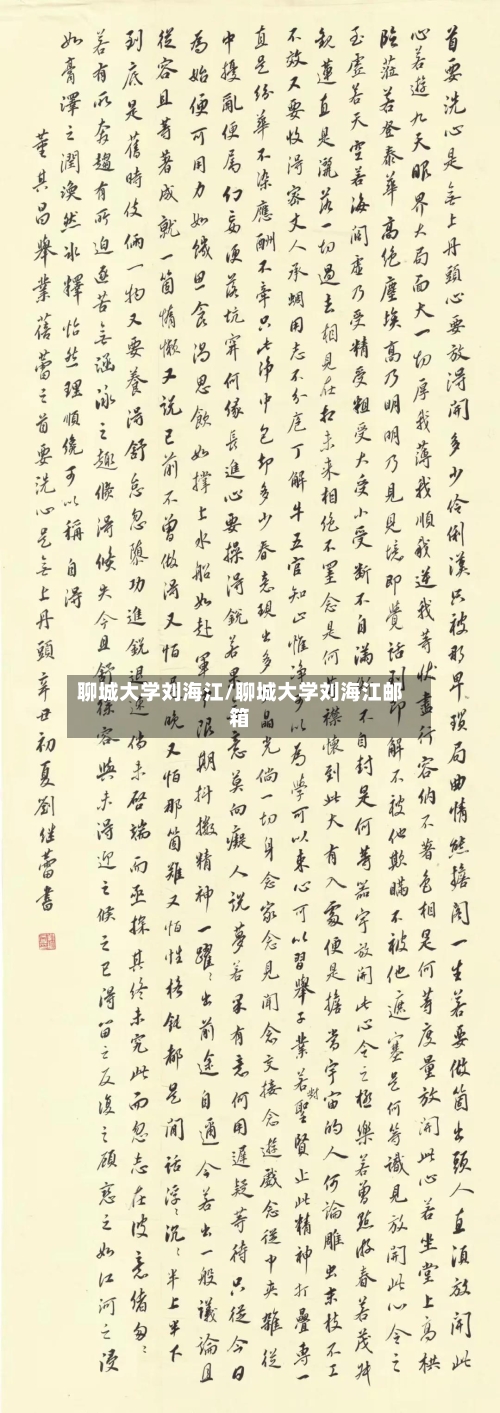 首要洗心是無上丹頭心要放得開多少伶俐漢只被那卑瑣局曲情態擔閣一生若要做箇出頭人直須放開此
心若遊九天眼界大局面大一切厚我薄我順我逆我等狀盡行容納不著色相是何等度量放開此心若坐堂上高栱
臨蒞若登泰華高絕塵埃高乃明明乃見見境即覺話到即解不被他欺瞞不被他遮塞是何等識見放開此心令之
玉虛若天空若海闊虛乃受精受粗受大受小受斷不自滿不自封是何等器宇放開此心令之極樂若曾點游春若茂叔
觀蓮直是灑落一切過去相見在相未來相絕不罣念是何等襟懷到此大有入處便是擔當宇宙的人何論雕虫末枝不工
不效又要收得家丈人承蜩用志不分庖丁解牛五官知止惟淨可以為學可以東心可以習舉子業若對聖賢止此精神打疊專一
直是紛華不染應酬不牽只此淨中包却多少春意現出多晶光倘一切身念家念見聞念交接念遊戲念從中夾雜從
中擾亂便屬幻妄便落坑穽何緣長進心要操得銳若果意莫向癡人說夢若果有意何用遲疑等待只從今日
為始便可用力如饑思食渴思飲如撐上水船如赴軍前限期抖擻精神一躍躍出前途自邇今若出一般議論且
從容且等著成就一箇惰懶又說已前不曾做得又怕晚又怕那箇難又怕性格鈍都是閒話浮浮沉沉半上半下
到底是舊時伎倆一物又要養得舒怠忽隳功進銳退速倘未啓端而亟探其終未究此而忽志在彼意緒匆匆
若有所奔趨有所迫逐苦無涵泳之趣倏得倏失今且舒徐容與未得迎之候之已得留之反復之顧戀之如江河之浸
如膏澤之潤渙然冰釋怡然理順纔可以稱自得
董其昌舉業蓓蕾之首要洗心是無上丹頭辛丑初夏劉繼蕾書
聊城大学刘海江/聊城大学刘海江邮
箱